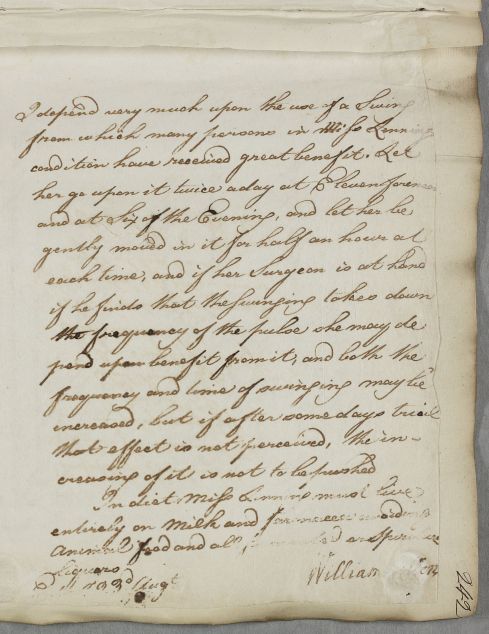 I depend very much upon the use of a Swing
from which many persons in Miss Lennings
condition have received great benefit. Let
her go upon it twice a day at Eleven forenoon
and at Six of the Evening, and let her be
gently moved in it for half an hour at
each time, and if her Surgeon is at hand
if he finds that the swinging takes down
the frequency of the pulse she may de
pend upon benefit from it, and both the
frequency and time of swinging may be
increased, but if after some days trial
that effect is not perceived, the in-
creasing of it is not to be pushed
In diet Miss Lenning must live
entirely on Milk and avoiding
Animal food and all or Spirituous
Liquors
3d Augt
William
242